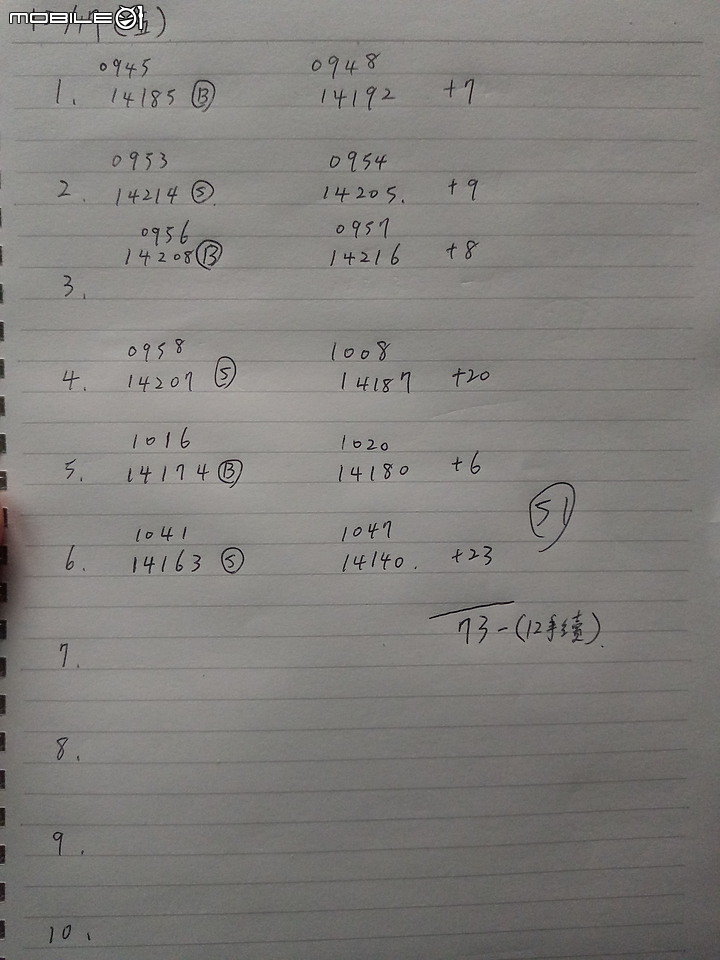 MOBILE01
0945 0948
1. 14185 Ⓑ 14192 +7
0953 0954
2. 14214 Ⓢ 14205. +9
0956 0957
14208 Ⓑ 14216 +8
3.
0958 1008
4. 14207 Ⓢ 14187 +20
1016 1020
5. 14174 Ⓑ 14180 +6
51
1041 1047
6. 14163 Ⓢ 14140. +23
73-(12手續)
7.
8.
9.
10.